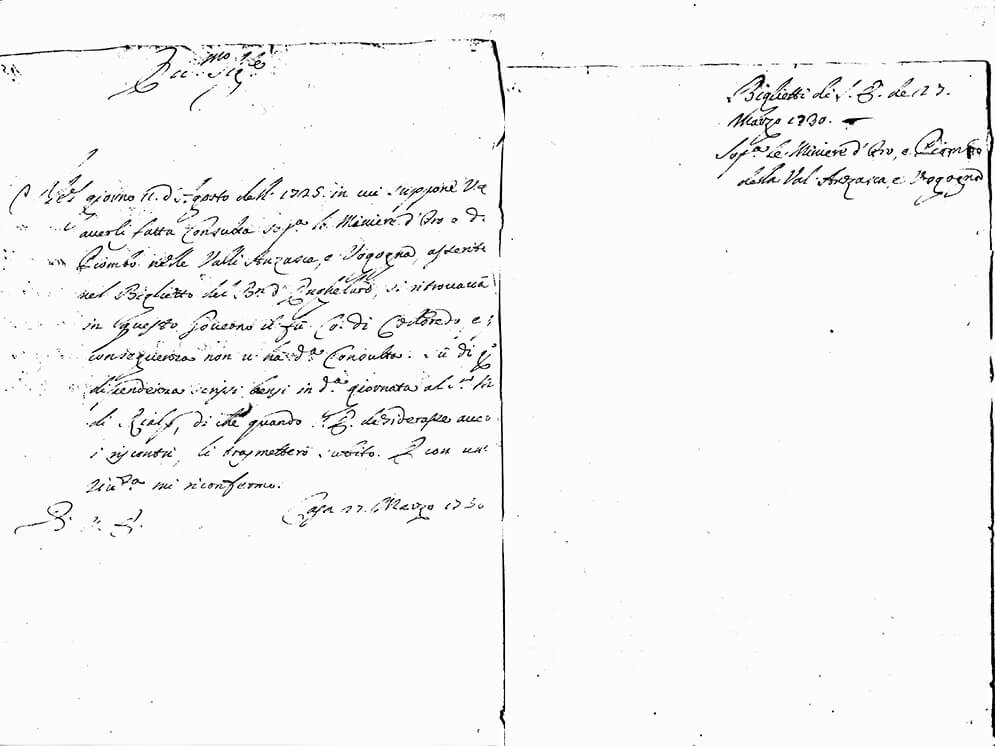 Ill.mo Sig.re
Nel giorno 11. d'Agosto dell' 1725. in cui suppone V.E.
averli fatta Consulta sop.a le Miniere d'Oro e di
Piombo nelle Valli Anzasca, e Vogogna, asserita
nel Biglietto del si ritrovava
in questo Governo il fù Co. di Colloredo, e
conseguenza non vi ha d.a Consulta. Sù di
dipendenza scrissi bensi in d.a giornata al S.r
di Rialp, di che quando S. E. desiderasse
i riscontri, li trasmetterò subito. E con
mi riconfermo.
Casa 27. Marzo 1730
Biglietti di S. E. de 27.
Marzo 1730.
Sop.a le Miniere d'Oro, e Piombo
della Val Anzasca, e Vogogna